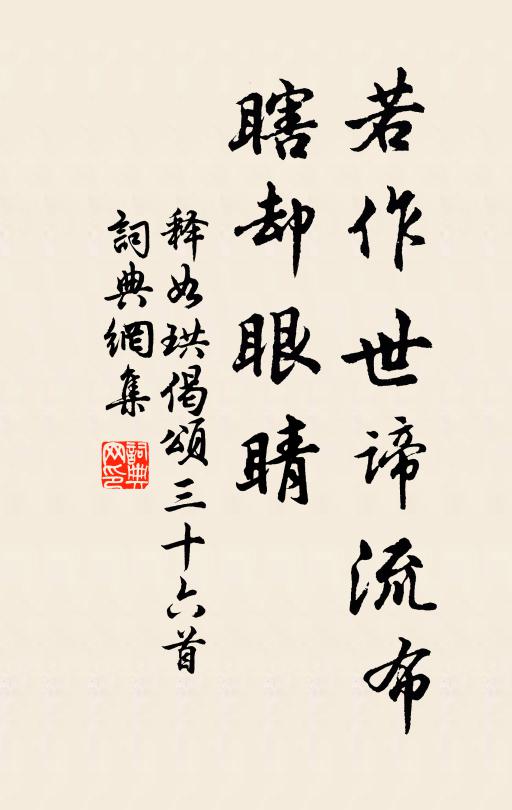 若作世諦流布
瞎却眼睛
释如珙偈颂三十六首
詞典網集
詞典網印